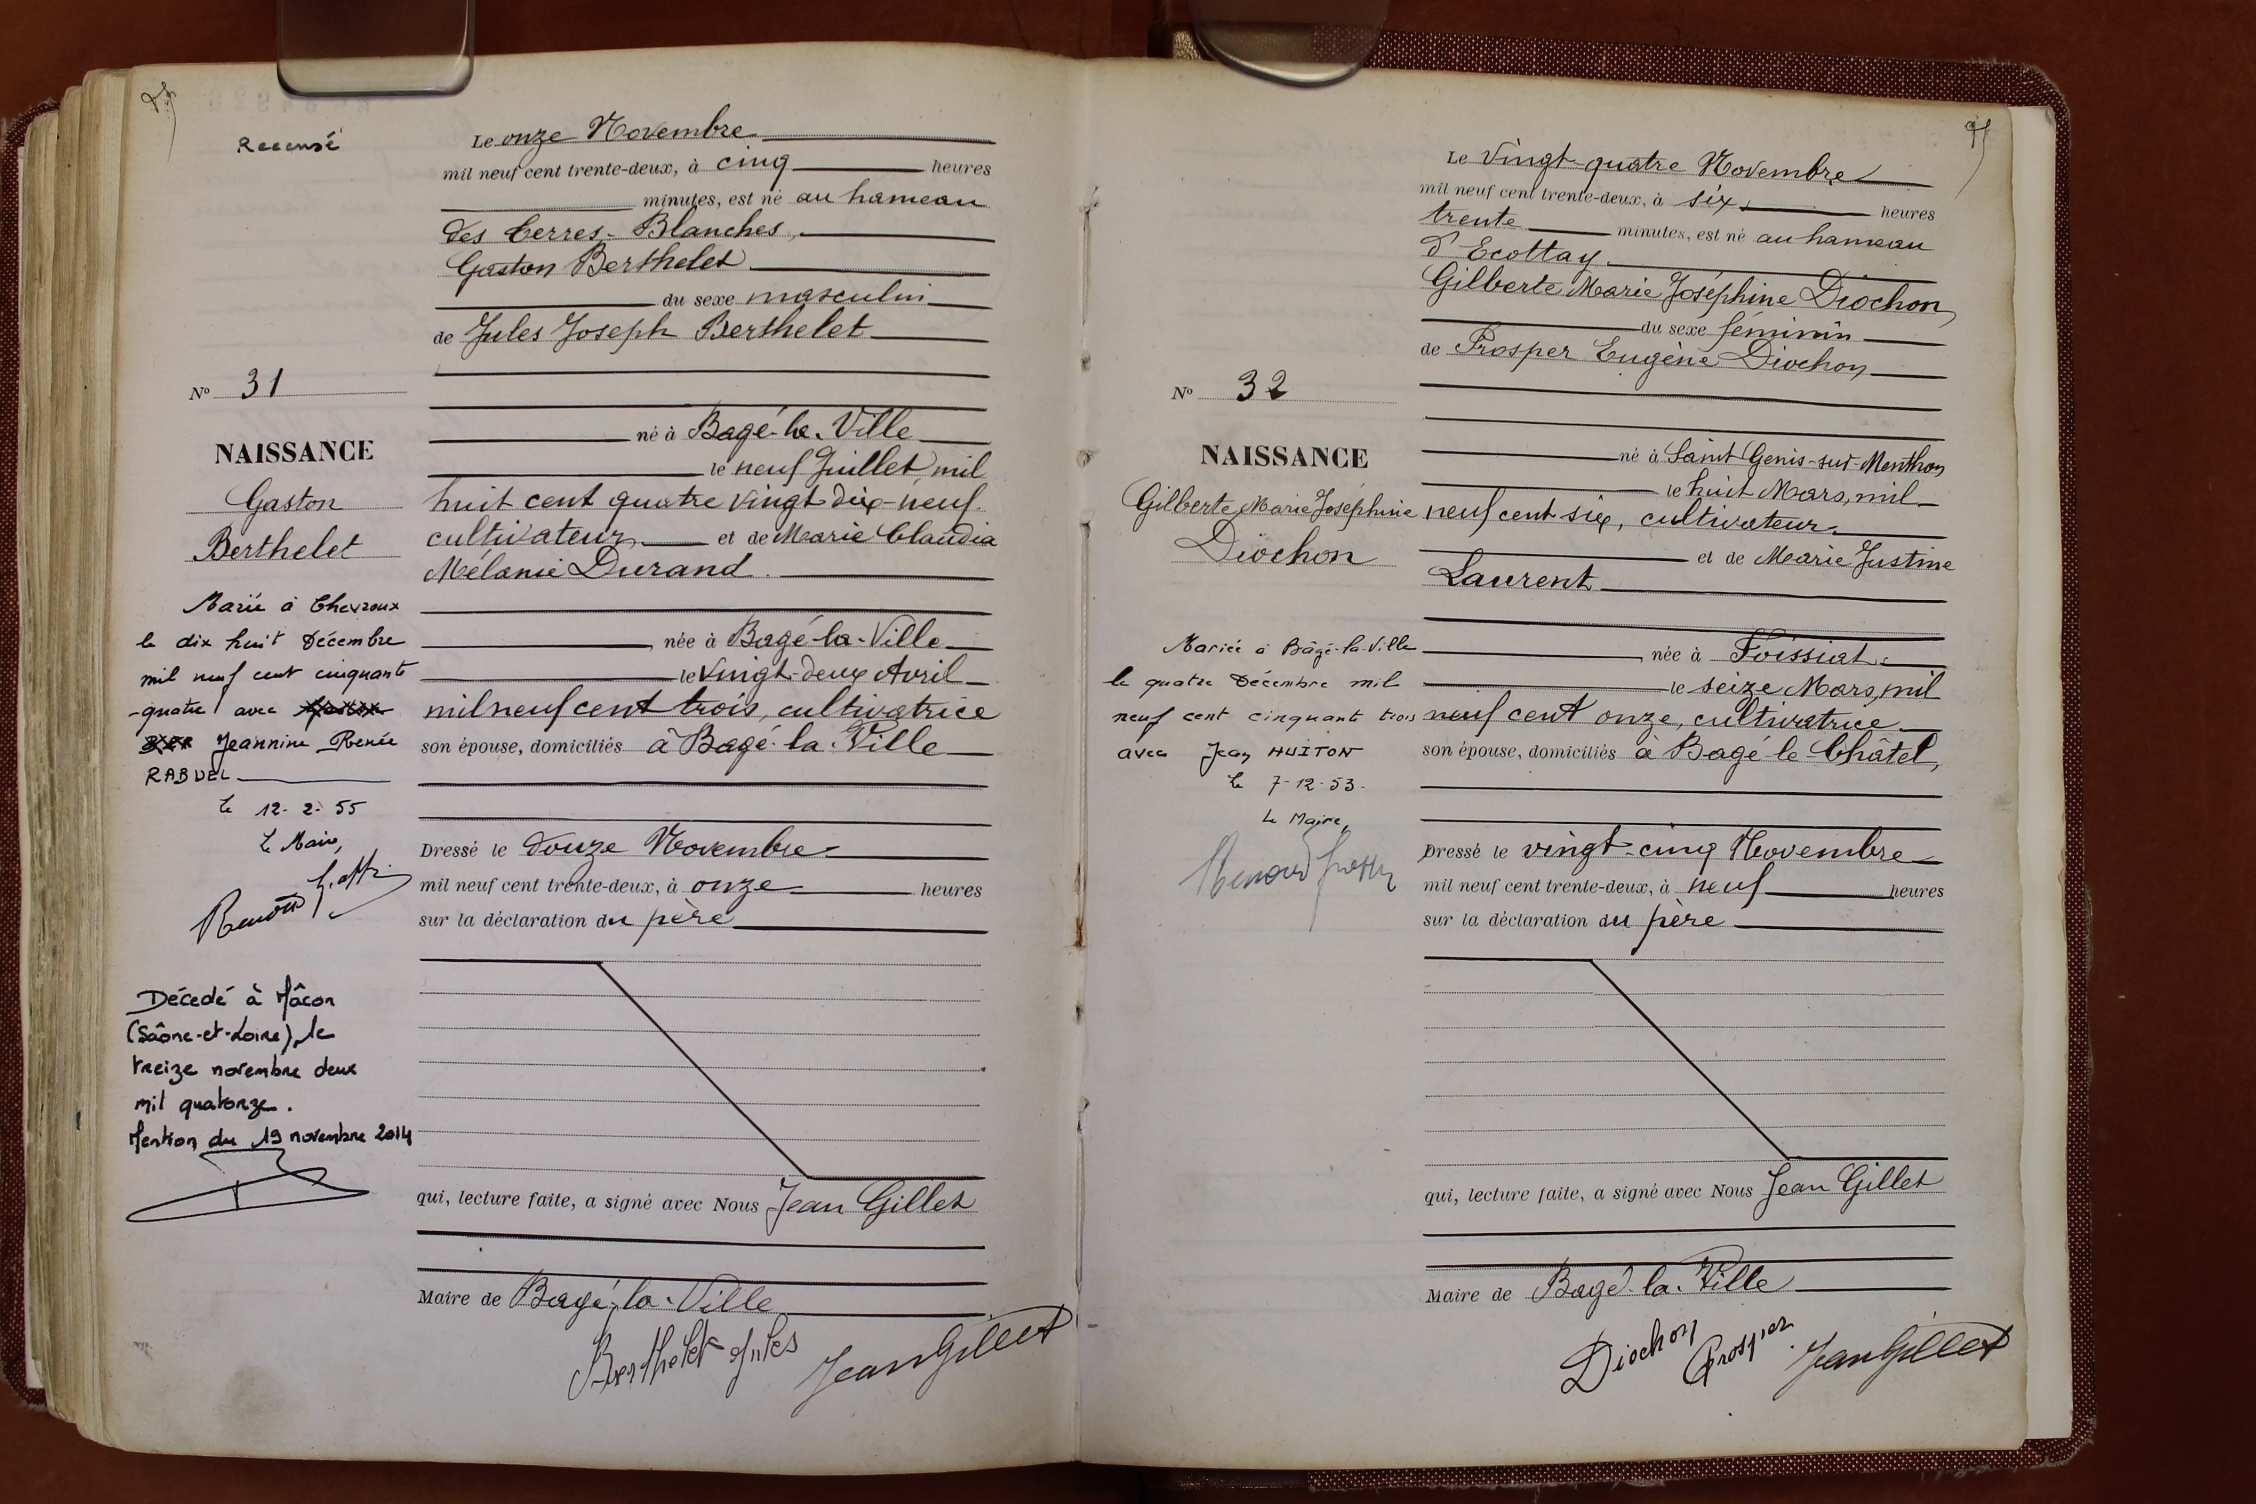 Recensé
Le onze Novembre
mil neuf cent trente-deux, à cinq heures
minutes, est né au hameau
des Terres-Blanches,
Gaston Berthelet
du sexe masculin
de Jules Joseph Berthelet
né à Bagé-la-Ville
le neuf Juillet, mil
huit cent quatre vingt dix-neuf
cultivateur et de Marie Claudia
Mélanie Durand.
née à Bagé-la-Ville
le vingt-deux Avril
mil neuf cent trois, cultivatrice
son épouse, domiciliés à Bagé-la-Ville
Dressé le douze Novembre
mil neuf cent trente-deux, à onze heures
sur la déclaration du père
qui, lecture faite, a signé avec Nous Jean Gillet
Maire de Bagé-la-Ville
Berthelet Jules
Jean Gillet
No 31
NAISSANCE
Gaston
Berthelet
Marié à Chevroux
le dix huit Décembre
mil neuf cent cinquante
-quatre avec
Jeannine Renée
RABUEL
Le 12-2-55
Le Maire,
Décedé à Mâcon
(Saône-et-Loire), le
treize novembre deux
mil quatorze.
Mention du 19 novembre 2014
Le vingt-quatre Novembre
mil neuf cent trente-deux, à six, heures
trente minutes, est né au hameau
d'Ecottay
Gilberte Marie Joséphine Diochon,
du sexe féminin
de Prosper Eugène Diochon
né à Saint Genis-sur-Menthon
le huit Mars, mil
neuf cent six, cultivateur
et de Marie Justine
Laurent
née à Foissiat
le seize Mars, mil
neuf cent onze, cultivatrice
son épouse, domiciliés à Bagé-le-Châtel,
Dressé le vingt-cinq Novembre
mil neuf cent trente-deux, à neuf heures
sur la déclaration du père
qui, lecture faite, a signé avec Nous Jean Gillet
Maire de Bagé-la-Ville
Diochon Prosper
Jean Gillet
No 32
NAISSANCE
Gilberte Marie Joséphine
Diochon
Mariée à Bâgé-la-Ville
le quatre Décembre mil
neuf cent cinquante trois
avec Jean HUITON
Le 7-12-53.
Le Maire,